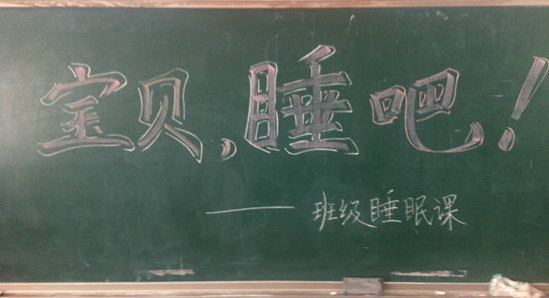 宝贝,睡吧!
——班级睡眠课